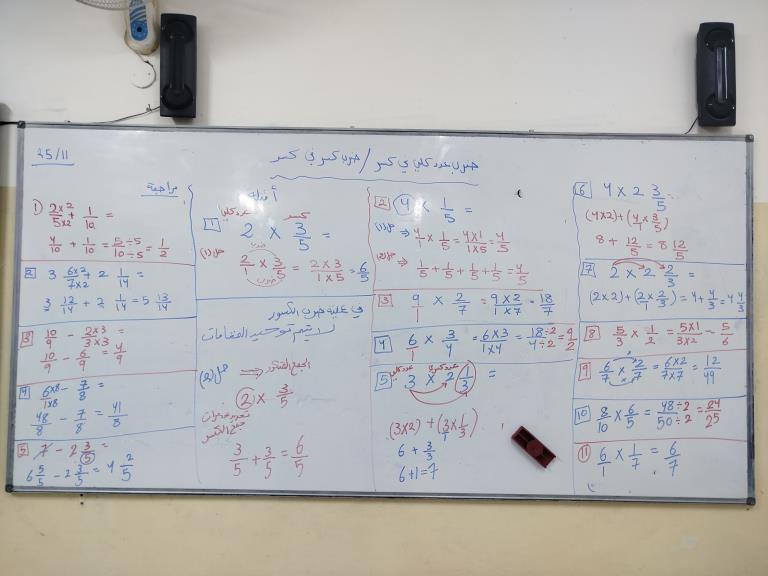 25/11
ضرب عدد كلي في كسر / ضرب كسر في كسر
مراجعة
1) 2×2/5×2 + 1/10 =
4/10 + 1/10 = 5÷5/10÷5 = 1/2
2 3 6×2/7×2 + 2 1/14 =
3 12/14 + 2 1/14 = 5 13/14
3 10/9 - 2×3/3×3 =
10/9 - 6/9 = 4/9
4 6×8/1×8 - 7/8 =
48/8 - 7/8 = 41/8
5 7 - 2 3/5 =
6 5/5 - 2 3/5 = 4 2/5
أمثلة
عدد كلي كسر
1 2 × 3/5 =
حل (1)
ضرب
2/1 × 3/5 = 2×3/1×5 = 6/5
ضرب
في عملية ضرب الكسور
لا يتم توحيد المقامات
حل (2) ⇒ الجمع المتكرر
2 × 3/5
جمع الكسر
3/5 + 3/5 = 6/5
2 4 × 1/5 =
حل (1) ⇒ 4/1 × 1/5 = 4×1/1×5 = 4/5
حل (2) ⇒
1/5 + 1/5 + 1/5 + 1/5 = 4/5
3 9/1 × 2/7 = 9×2/1×7 = 18/7
4 6/1 × 3/4 = 6×3/1×4 = 18÷2/4÷2 = 9/2
عدد كلي عدد كسري
5 3 × 2 1/3 =
(3×2) + (3/1 × 1/3)
6 + 3/3
6+1=7
6 4 × 2 3/5
(4×2) + (4/1 × 3/5)
8 + 12/5 = 8 12/5
7 2 × 2 2/3 =
(2×2) + (2/1 × 2/3) = 4 + 4/3 = 4 4/3
8 5/3 × 1/2 = 5×1/3×2 = 5/6
9 6/7 × 2/7 = 6×2/7×7 = 12/49
10 8/10 × 6/5 = 48÷2/50÷2 = 24/25
11 6/1 × 1/7 = 6/7